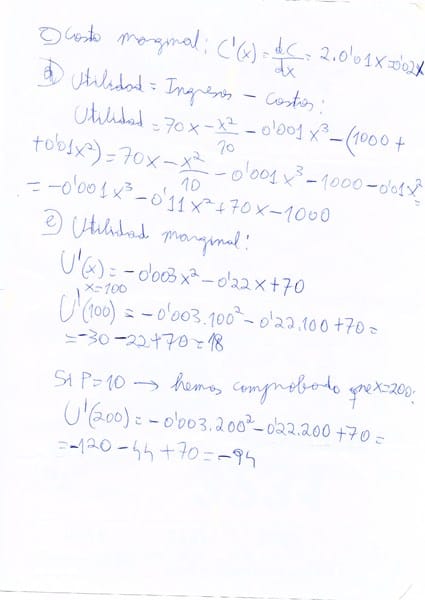 c) Costo marginal: C'(x) = dC/dx = 2.0'01x = 0'02x
d) Utilidad = Ingresos - Costos:
Utilidad = 70x - x²/10 - 0'001x³ - (1000 +
+ 0'01x²) = 70x - x²/10 - 0'001x³ - 1000 - 0'01x² =
= -0'001x³ - 0'11x² + 70x - 1000
e) Utilidad marginal:
U'(x) = -0'003x² - 0'22x + 70
x=100
U'(100) = -0'003.100² - 0'22.100 + 70 =
= -30 - 22 + 70 = 18
Si P=10 → hemos comprobado que x=200:
U'(200) = -0'003.200² - 0'22.200 + 70 =
= -120 - 44 + 70 = -94